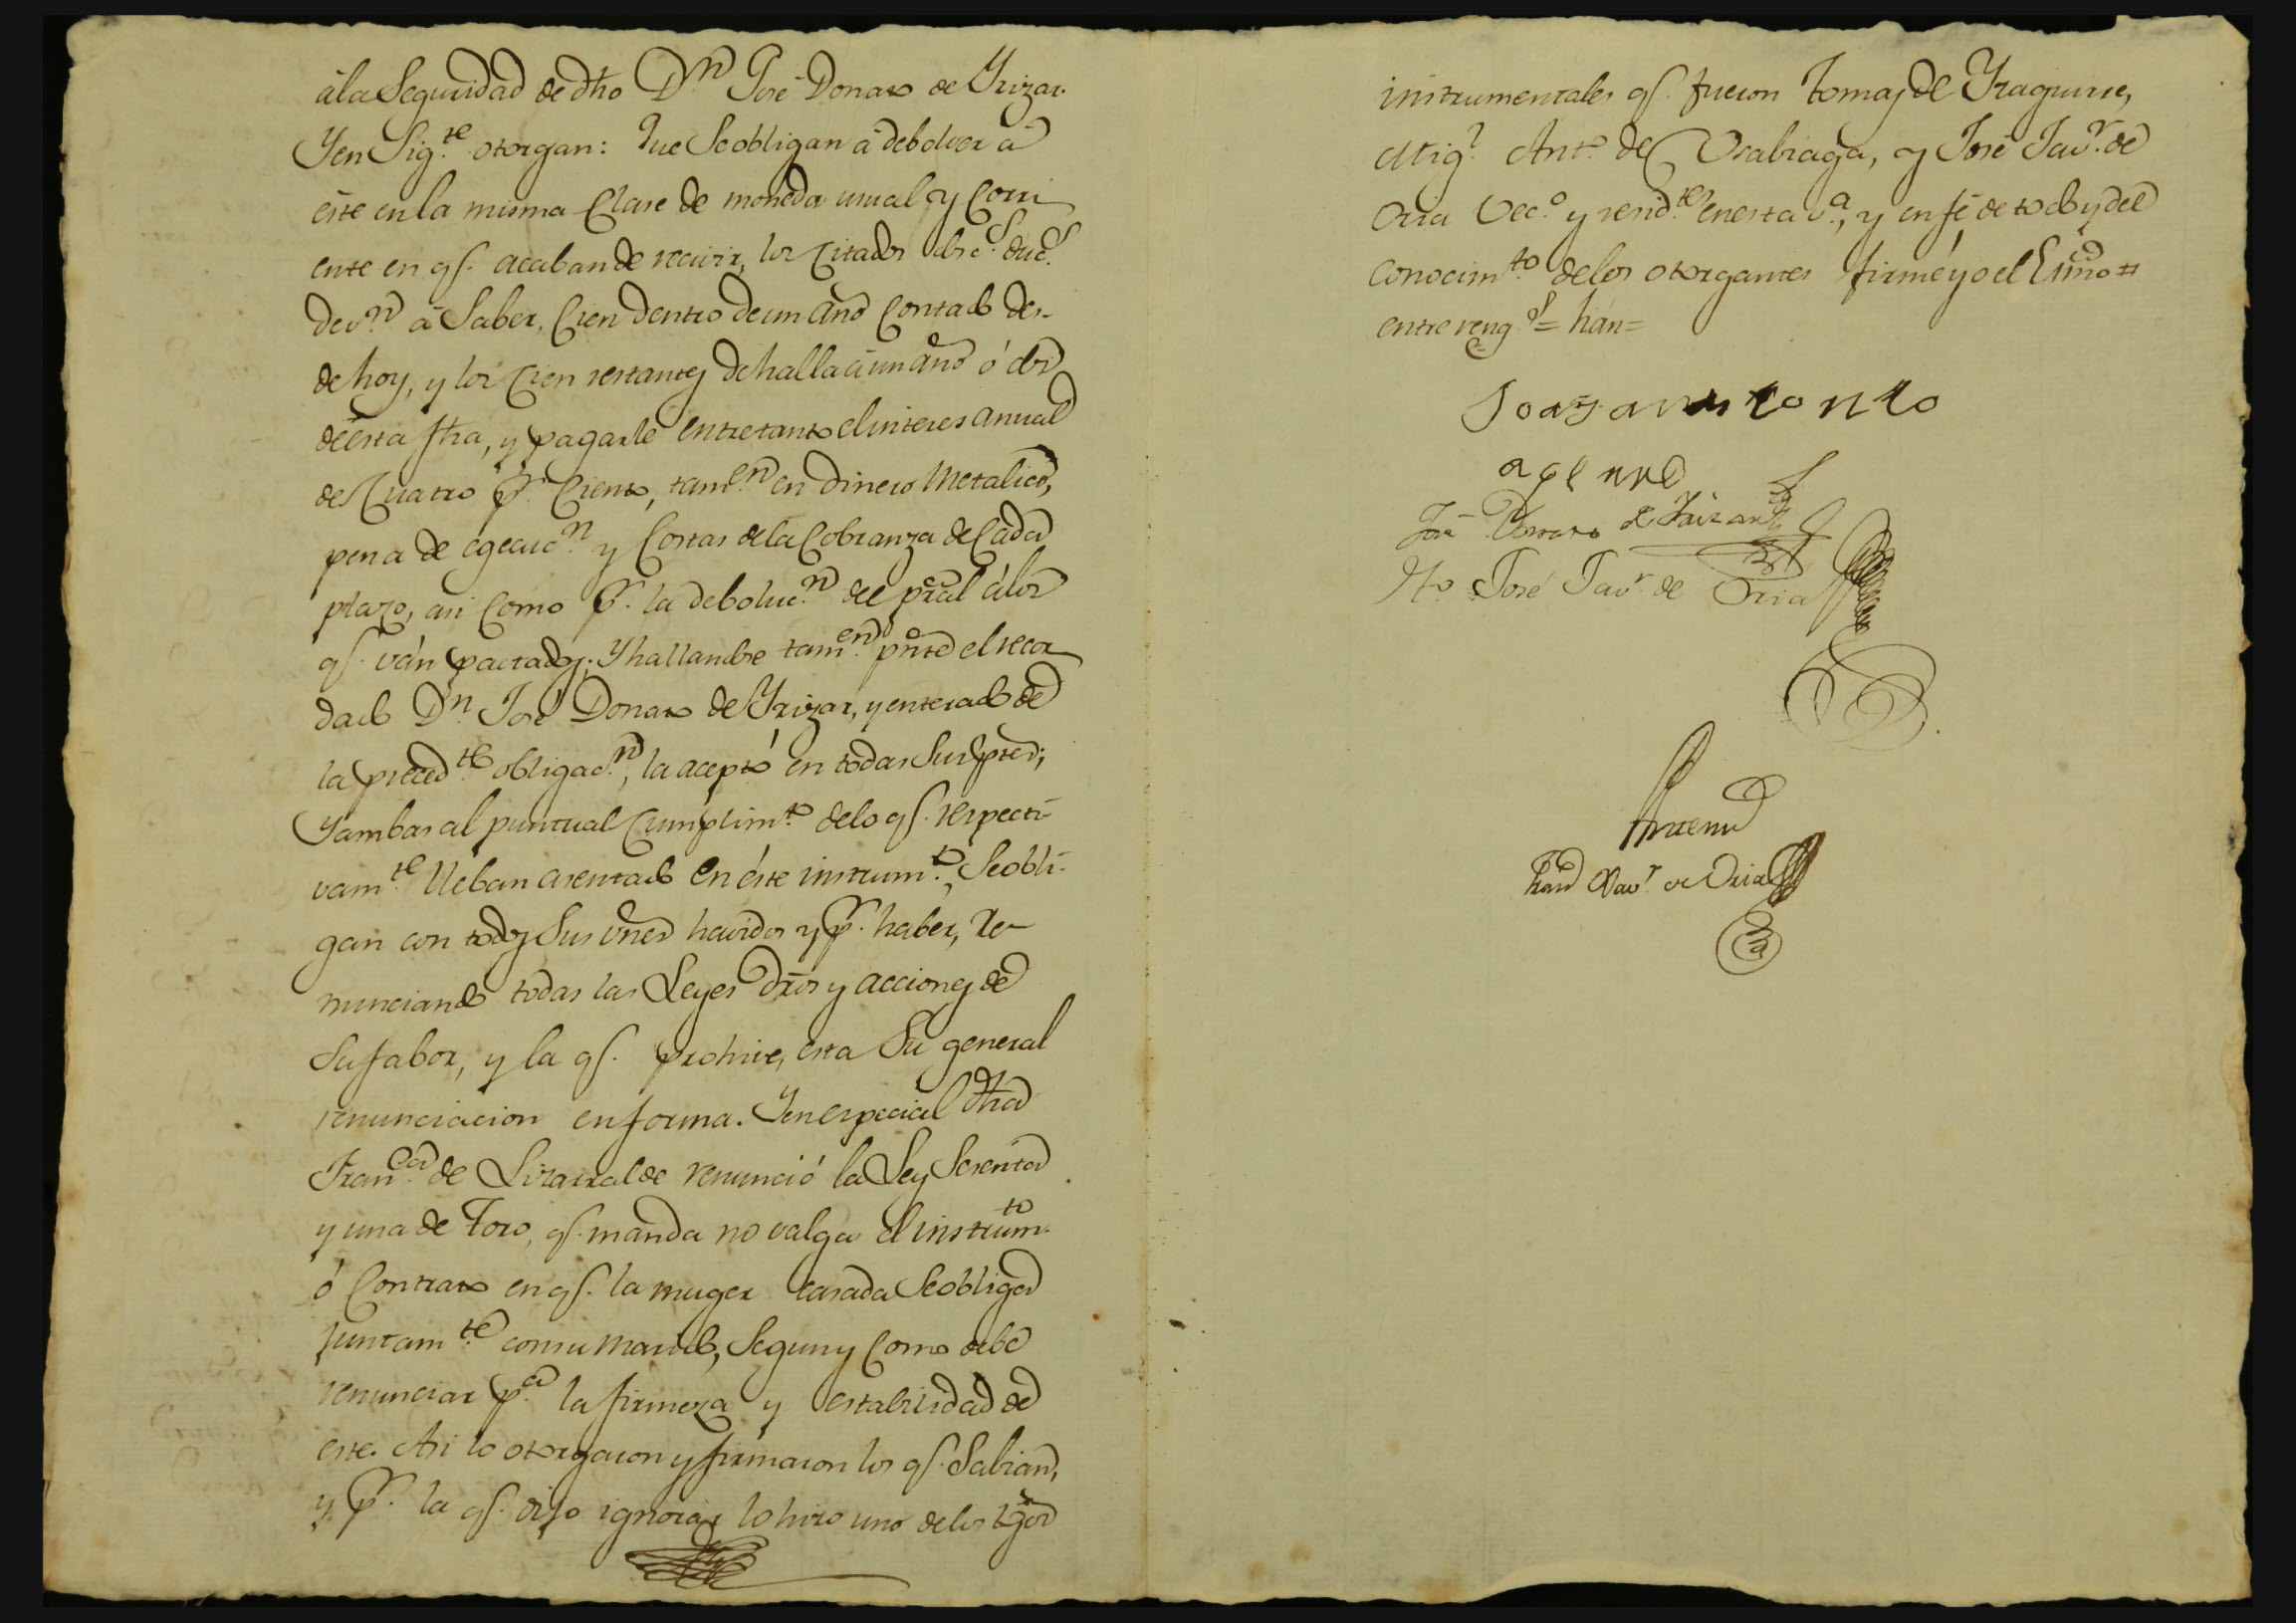 á la Seguridad de dho Dn José Donato de Yrizar.
Y en Sigte otorgan: Que Se obligan á debolver á
éste en la misma Clase de moneda usual y Corri
ente en qe. acaban de recivir, los Citados dosc.s duc.s
de v.n á Saber, Cien dentro de un año Contado des-
de hoy, y los Cien restantes de halla á un año ó dos
de ésta fha, y pagarle entretanto el interes anual
de Cuatro pr. Ciento, tamen en dinero Metalico,
pena de egecuc.n y Costas de la Cobranza de Cada
plazo, asi Como pr. la deboluc.n del pral á los
qe. ván pactados; Y hallandose tamen pnte el recor
dado Dn. José Donato de Yrizar, y enterado de
la precedte obligac.n, la aceptó en todas Sus ptes;
Y ambas al puntual Cumplimto de lo qe. respecti-
vamte lleban asentado en éste instrumto, Se obli-
gan con todos Sus vnes havidos y pr. haber, Re-
nunciando todas las Leyes dros y acciones de
Su fabor, y la qe. prohive esta Su general
renunciacion en forma. Y en especial dha
Franca de Lizarralde renunció la Ley Sesenta
y una de Toro, qe. manda no valga el instrumto
ó Contrato en qe. la muger casada Se obliga
juntamte con su marido, Segun y Como debe
renunciar pa la firmeza y estabilidad de
este. Asi lo otorgaron y firmaron los qe. Sabian,
y pr. la qe. dijo ignorar lo hizo uno de los tgos
instrumentales qe. fueron Tomas de Yraguirre,
Migl Anto de Usabiaga, y José Javr. de
Oria Veco y residtes en esta va, y en fé de todo y del
Conocimto de los otorgantes firmé yo el Essno =
entre reng.s = hán =
Joazan antonio
José Donato de Yrizar
To José Javr de Oria
Ante mi
Javr de Oria